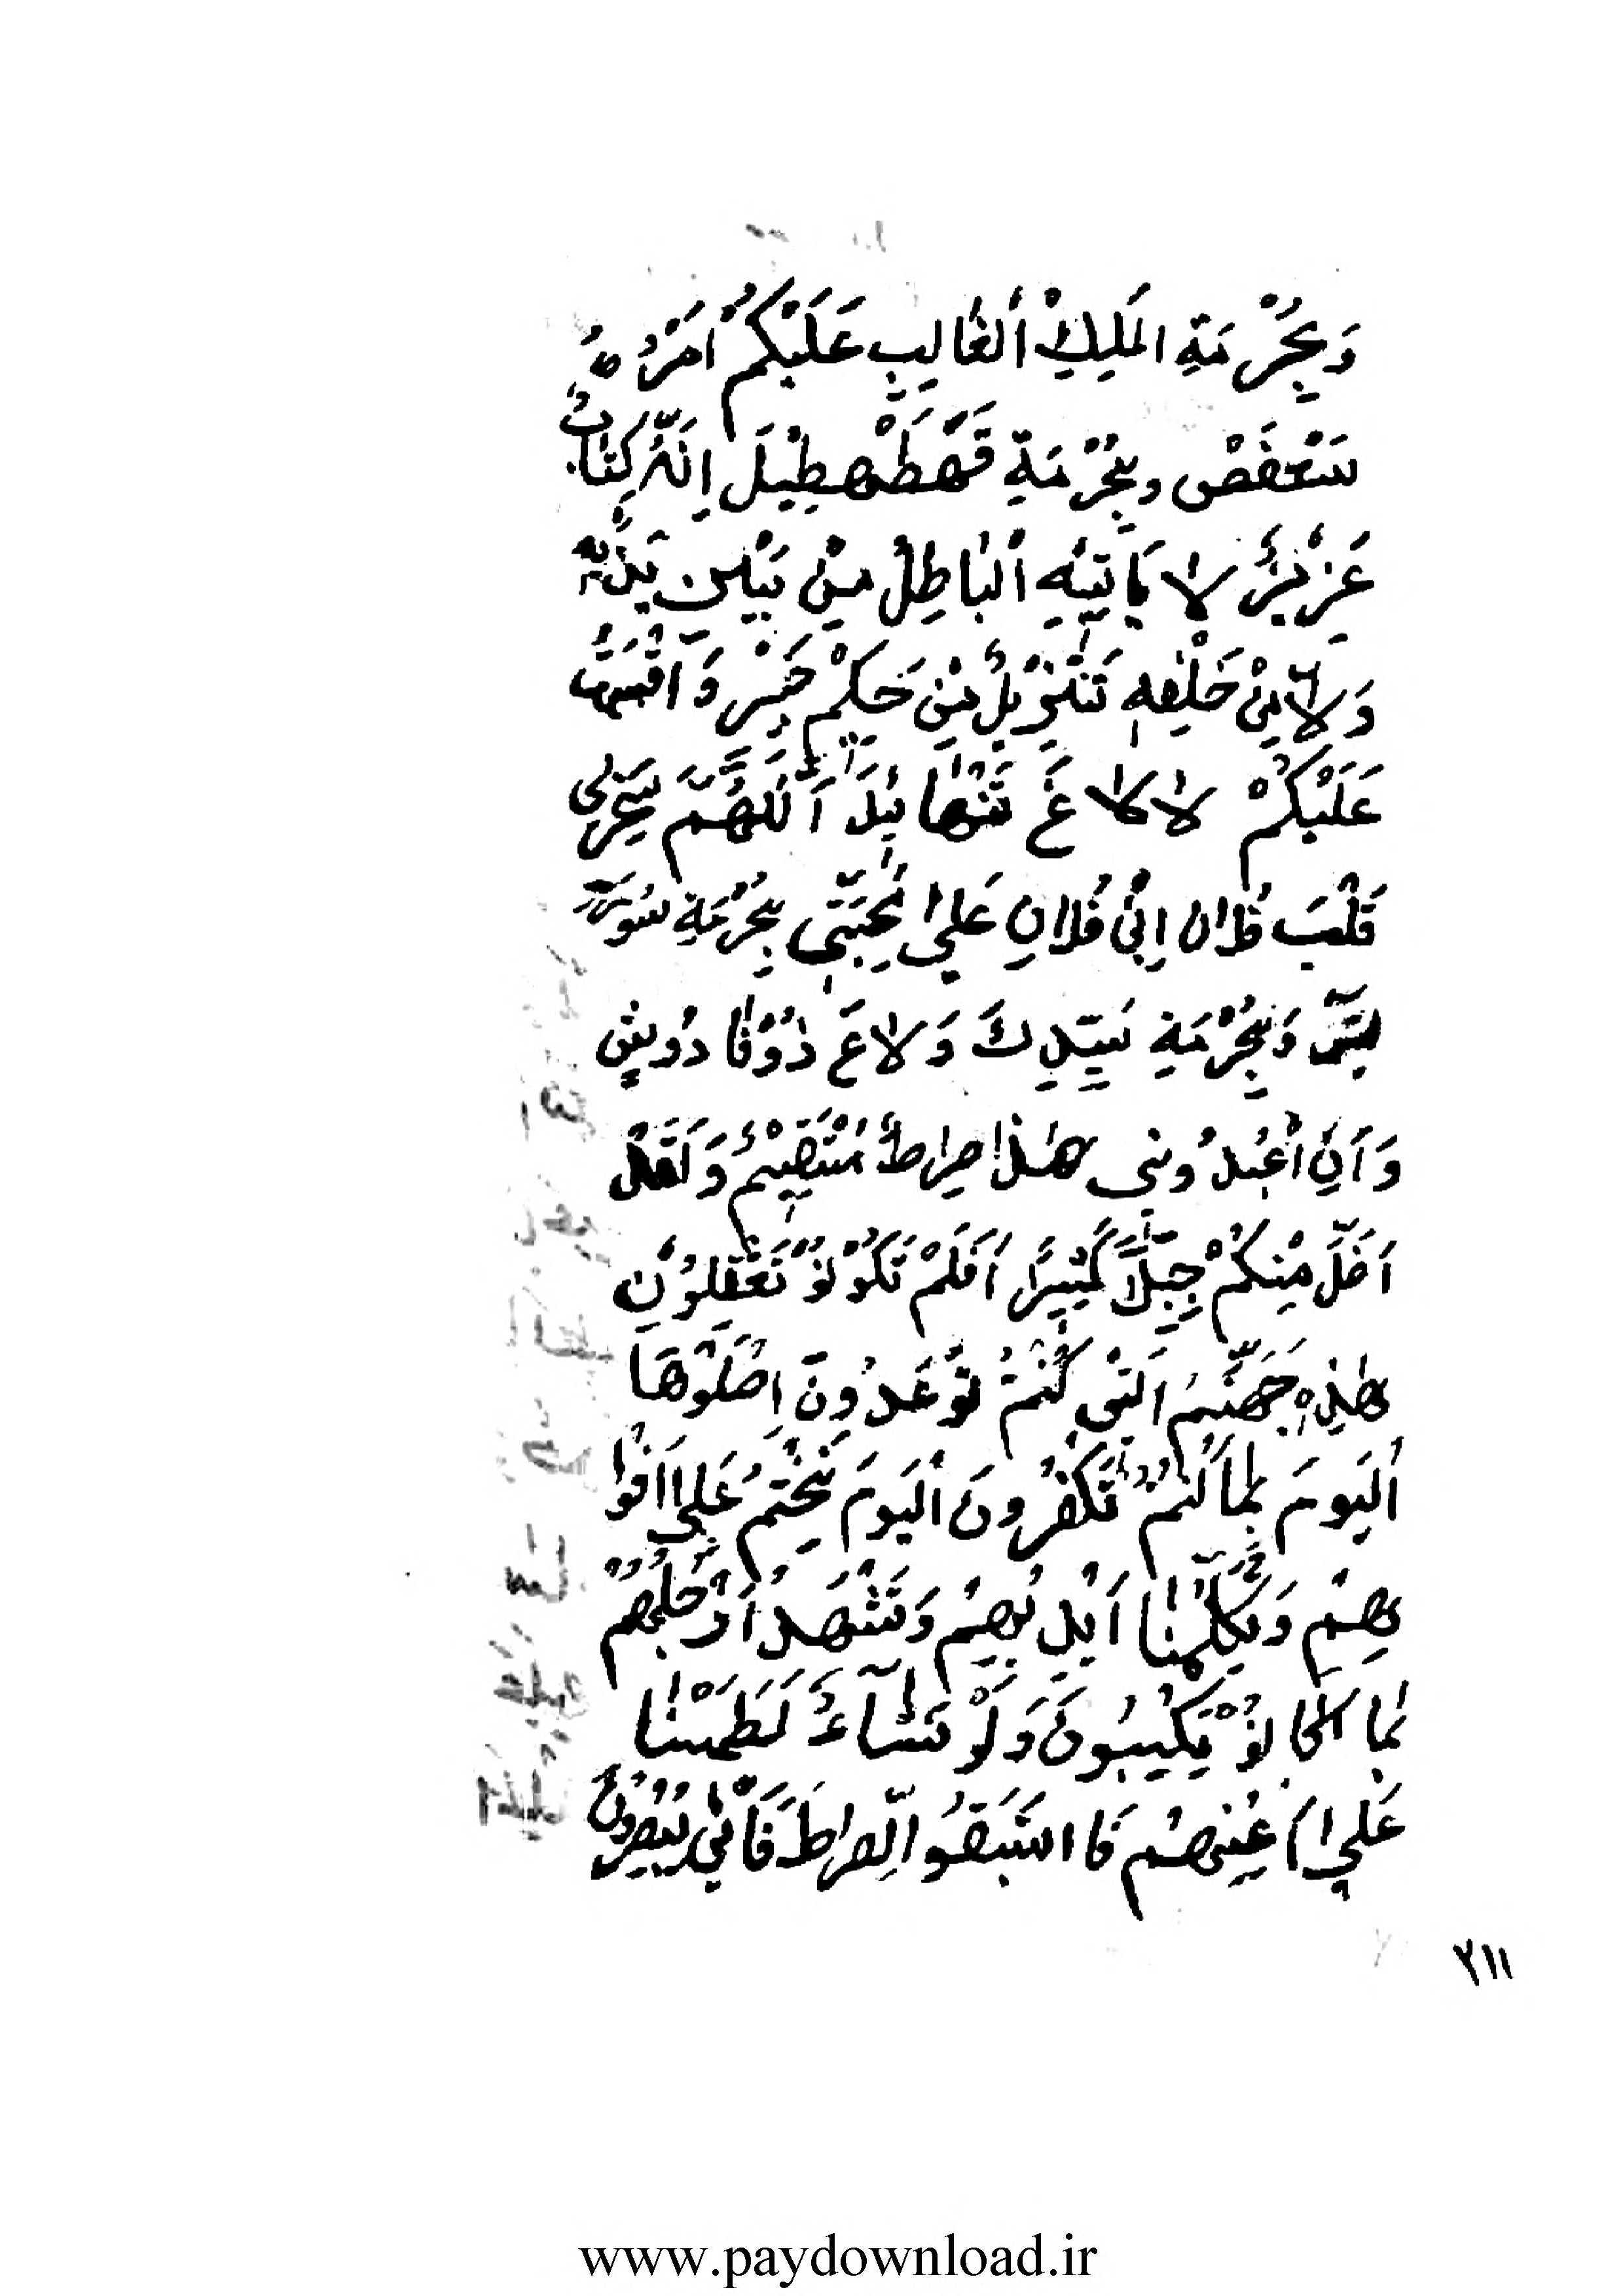 وَبِحُرْمَةِ الْمَلِكِ الْغَالِبِ عَلَيْكُمْ اَمْرُهُ
سَعْفَصْ وبِحُرْمَةِ قَهْطَهْطِيلَ اِنَّهُ لَكِتَابٌ
عَزِيْزٌ لا يَاتِيْهِ اْلبَاطِلُ مِنْ بَيْنِ يَدَيْهِ
وَلا مِنْ خَلْفِهِ تَنْزِيْلٌ مِنْ حَكِيْمٍ وَ اَقْسَمْتُ
عَلَيْكُمْ لا لالا عَ اَللّهُمَّ سَخِّرلى
قَلْبَ فلان اِبْنِ فُلانِ عَلى مُحَبَّتى بِحُرْمَةِ سُورَة
يس وَبِحُرْمَةِ وَلاعَ
وَ اَنِ اعْبُدُونى هٰذا صِراطٌ مُسْتَقِيْمٌ وَ لَقَدْ
اَضَلَّ مِنْكُمْ جِبِلّاً كَثِيْراً اَفَلَمْ تَكُوْنُوْ تَعْقِلُوْنَ
هٰذِهِ جَهَنَّمُ الَّتىْ كُنْتُمْ تُوْعَدُونَ اِصْلَوْهَا
اَلْيَومَ بِمَا كُنْتُمْ تَكْفُرُونَ اَلْيَومَ نَخْتِمُ عَلى اَفْوا
هِهِمْ وَ تُكَلِّمُنٰا اَيْدِيْهِمْ وَ تَشْهَدُ اَرْجُلُهُمْ
بِمٰا كانُوْ يَكْسِبُونَ وَ لَوْ نَشآءُ لَطَمَسْنٰا
عَلى اَعْيُنِهِمْ فَااسْتَبَقُوالصّراطَ فَاَنّٰى يُبْصِرُونَ
٢١١
www.paydownload.ir